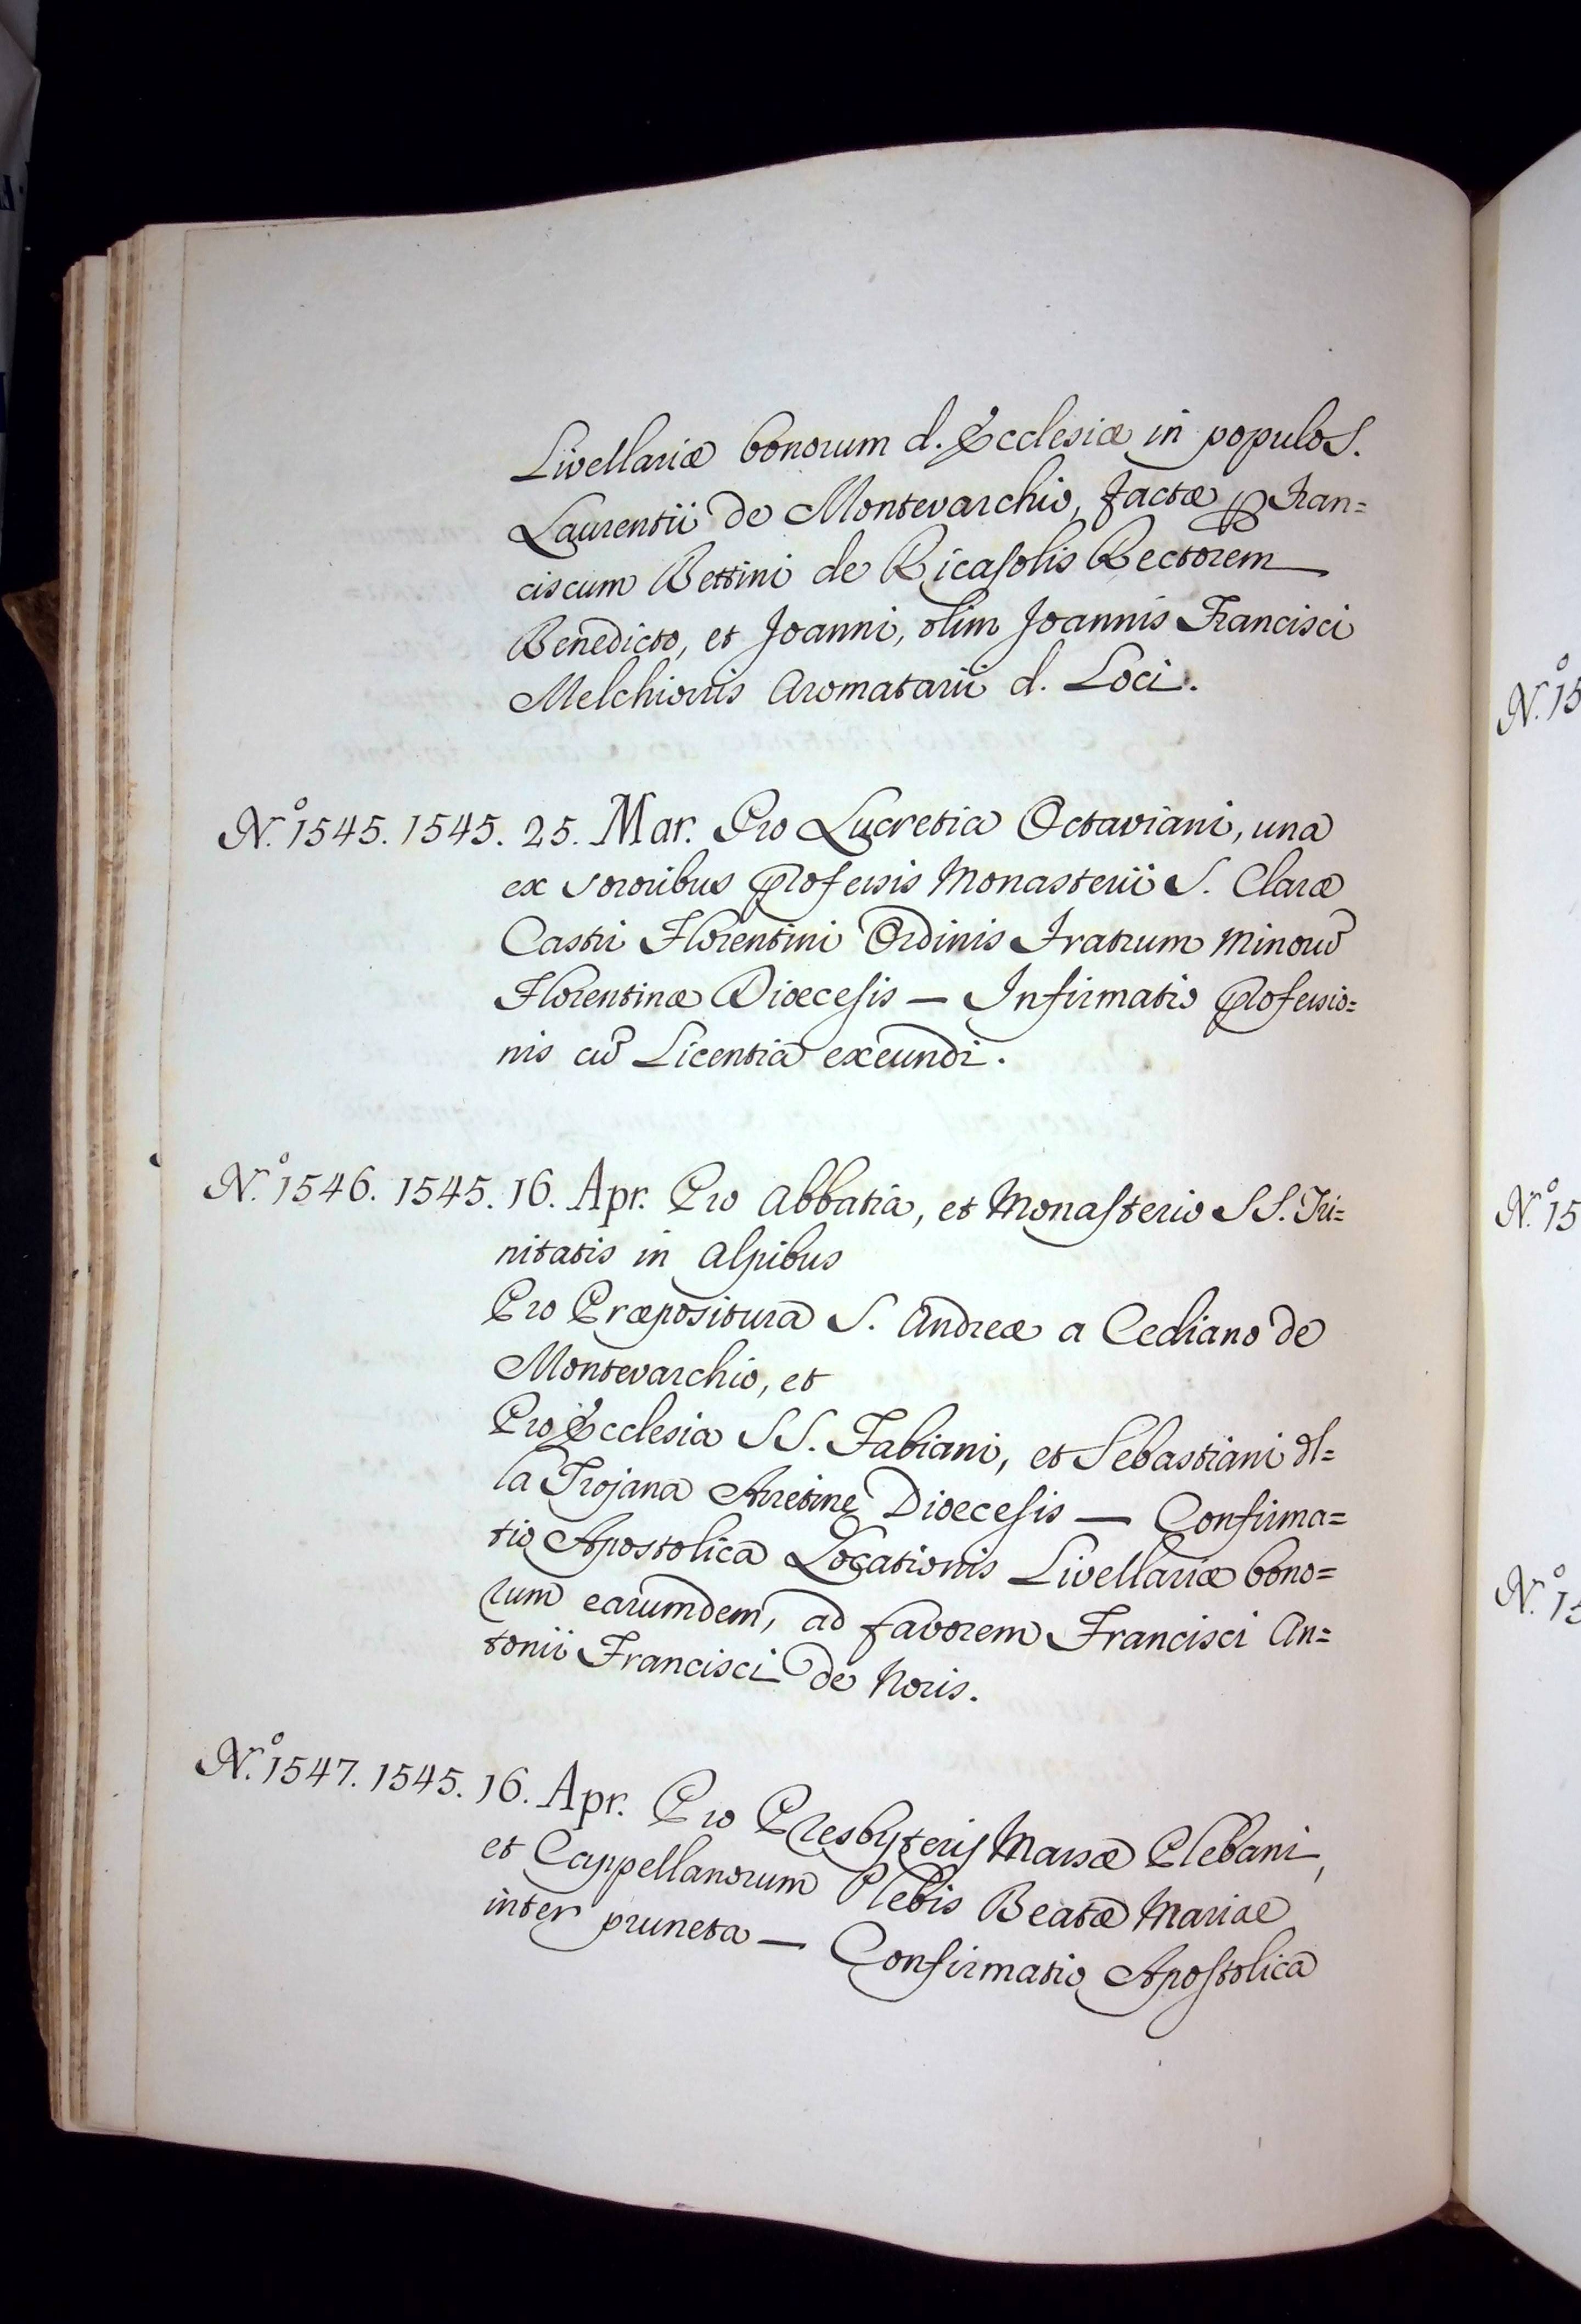 Livellariæ bonorum d. Ecclesiæ in populo S.
Laurentii de Montevarchio, factæ ꝑ Fran=
ciscum Bettini de Ricasolis Rectorem
Benedicto, et Joanni, olim Joannis Francisci
Melchionis Aromatarii d. Loci.
N.º 1545. 1545. 25. Mar. Pro Lucretia Octaviani, una
ex sororibus professis Monasterii S. Claræ
Castri Florentini Ordinis Fratrum Minorū
Florentinæ Diœcesis — Infirmatio professio=
nis cū Licentia exeundi.
N.º 1546. 1545. 16. Apr. Pro Abbatia, et Monasterio SS. Tri=
nitatis in Alpibus
Pro Præpositura S. Andreæ a Cediano de
Montevarchio, et
Pro Ecclesia SS. Fabiani, et Sebastiani dl=
la Trojana Aretinę Diœcesis — Confirma=
tio Apostolica Locationis Livellariæ bono=
rum earumdem, ad favorem Francisci An=
tonii Francisci de Noris.
N.º 1547. 1545. 16. Apr. Pro Presbyteris Massæ Plebani,
et Cappellanorum Plebis Beatæ Mariae
inter pruneta — Confirmatio Apostolica
N.º 15
N.º 15
N.º 15